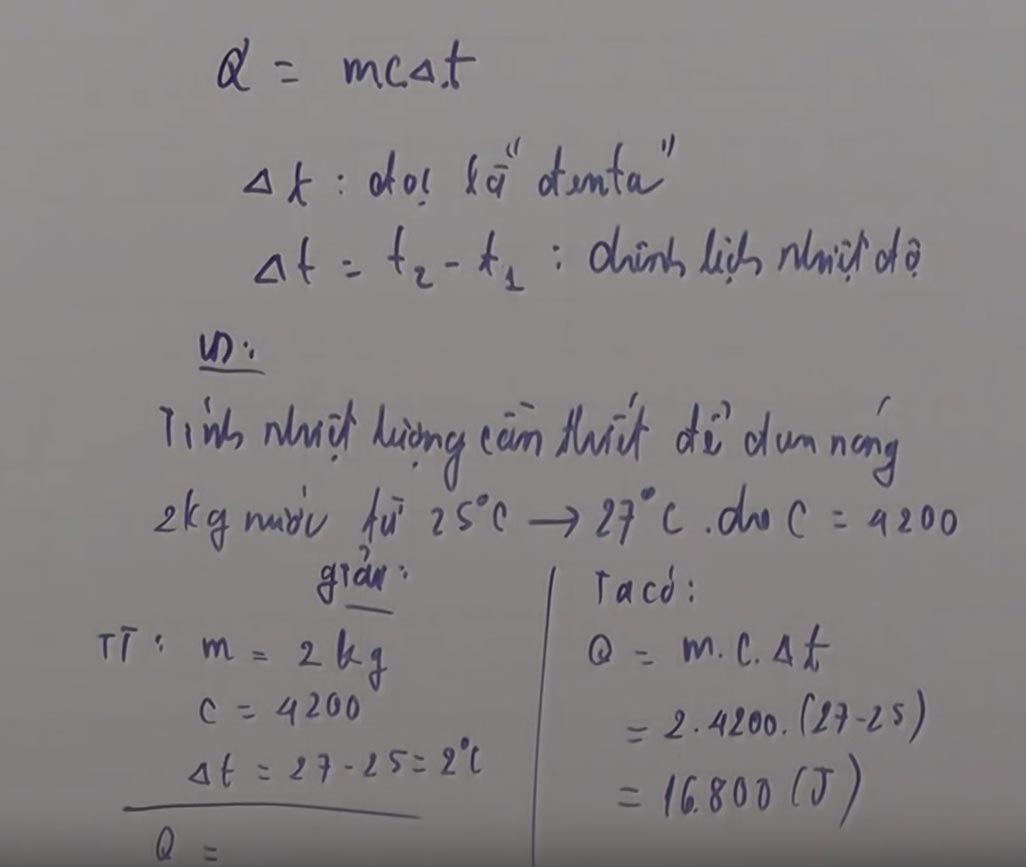 Q = m.c.Δt
Δt : đọc là "denta"
Δt = t₂ - t₁ : chênh lệch nhiệt độ
VD:
Tính nhiệt lượng cần thiết để đun nóng
2kg nước từ 25°C → 27°C. cho C = 4200
giải:
TT: m = 2kg
c = 4200
Δt = 27-25 = 2°C
Q =
Ta có:
Q = m.c.Δt
= 2.4200.(27-25)
= 16.800 (J)